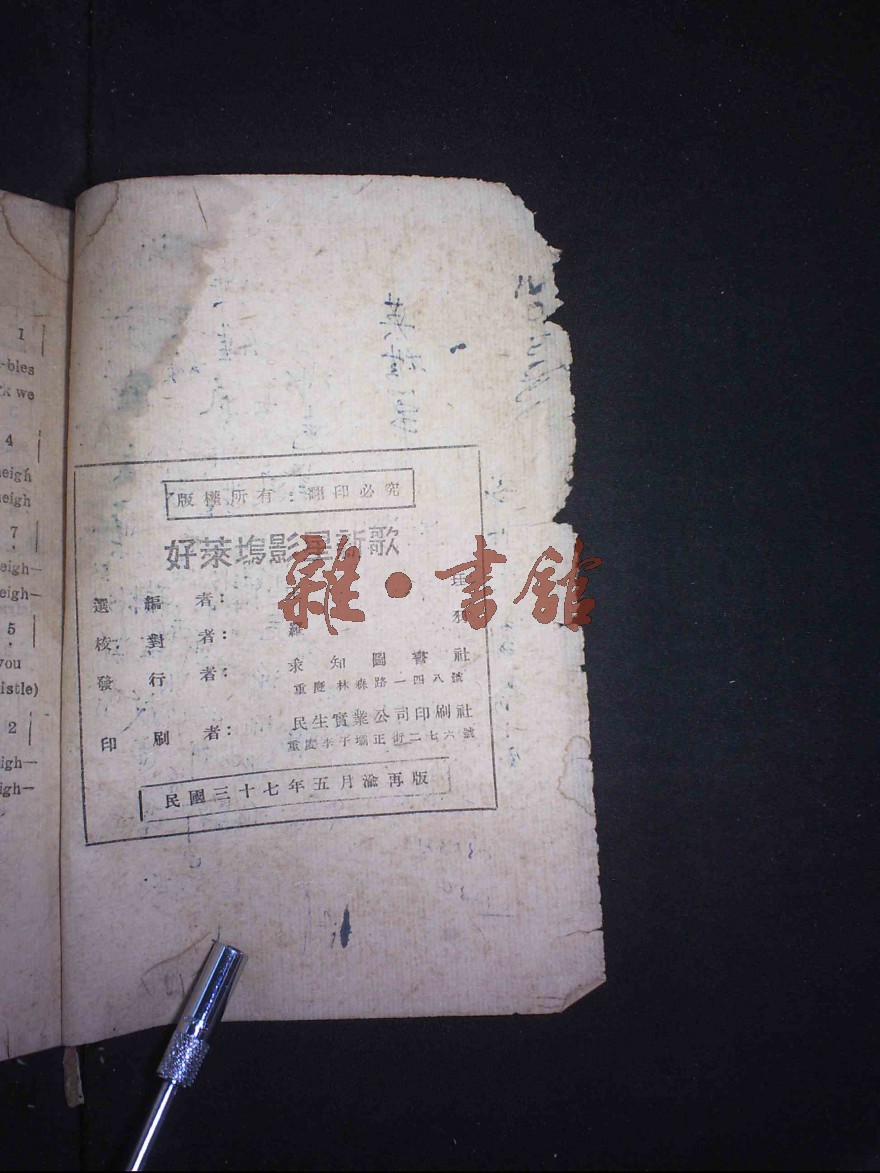 1
-bles
k we
4
eigh
eigh
7
eigh—
eigh—
5
you
istle)
2
igh—
igh—
版權所有：翻印必究
好萊塢影星新歌
選編者：
核對者：
發行者：求知圖書社
重慶林森路一四八號
印刷者：民生實業公司印刷社
重慶李子壩正街二七六號
民國三十七年五月渝再版
雜·書館